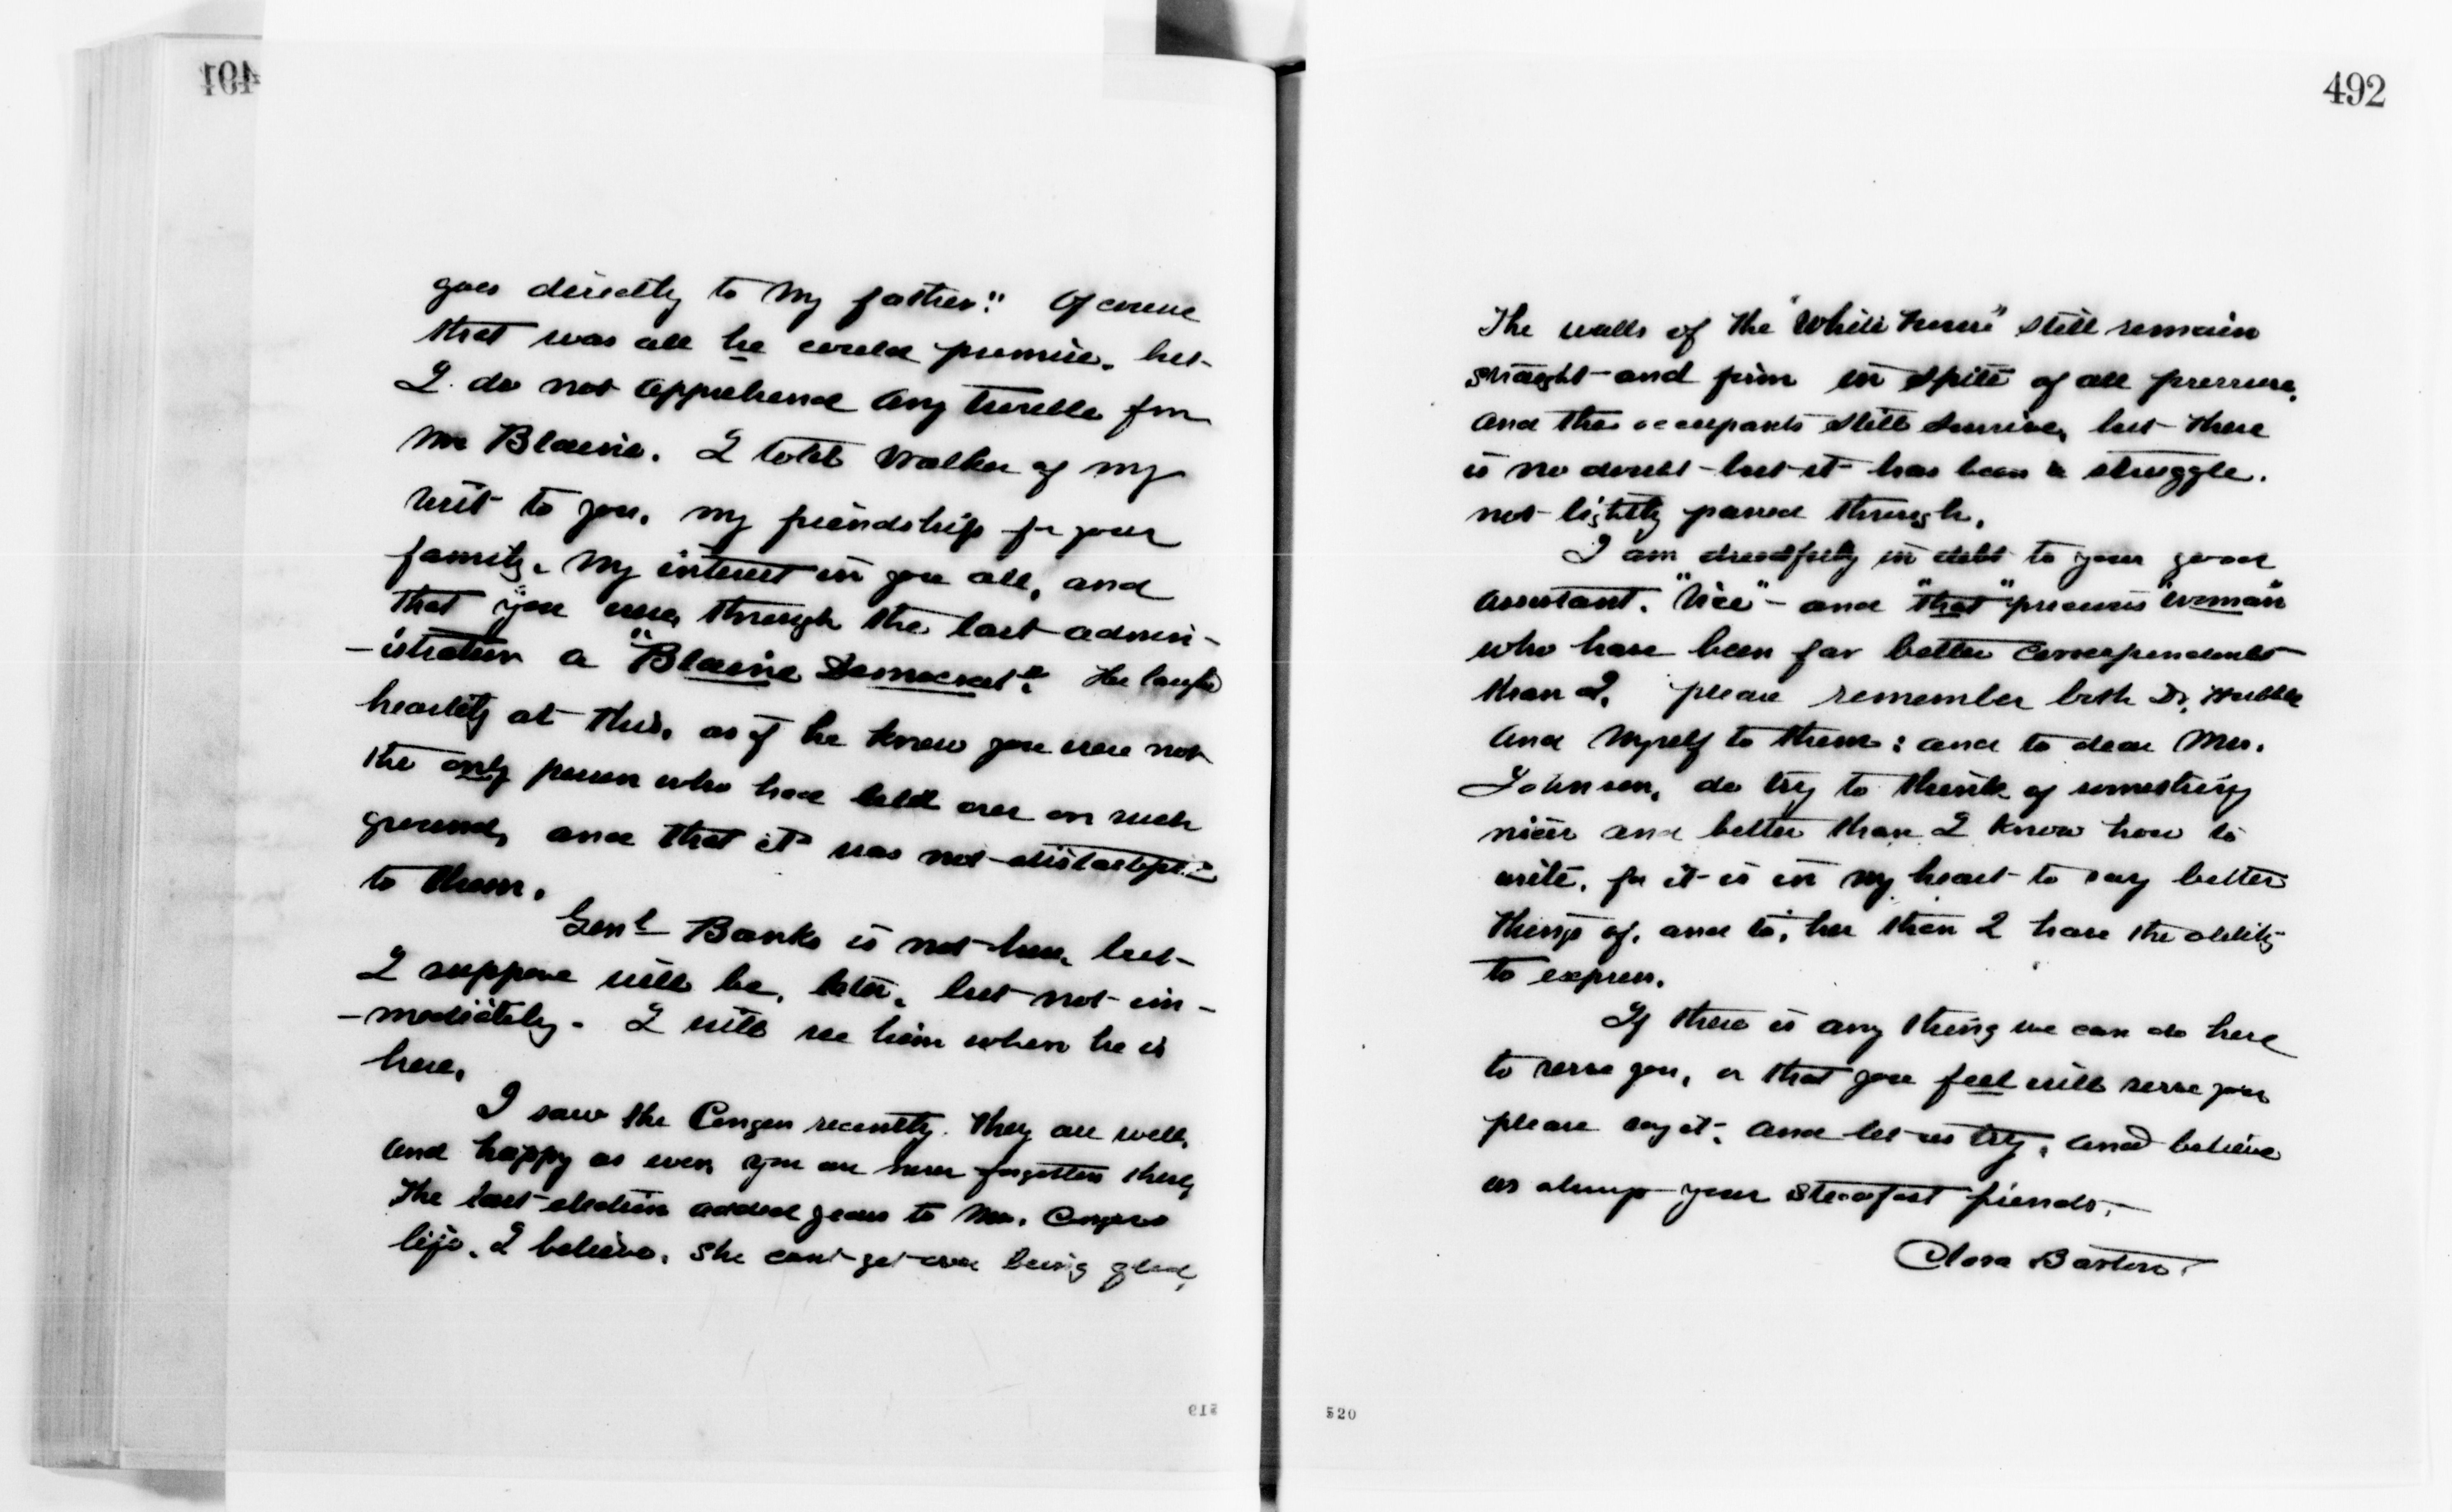 491
goes directly to my father." Of course
that was all he could promise. but
I do not apprehend any trouble from
Mr Blaine. I told Walker of my
visit to you, my friendship for your
family, my interest in you all, and
that "you were, through the last admin-
-istration a "Blaine Democrat". He laughed
heartily at this, as if he knew you were not
the only person who had held over on such
ground, and that it was not distasteful
to them.
Genl Banks is not here, but
I suppose will be, later, but not im-
-mediately. I will see him when he is
here.
I saw the Congers recently. They are well,
and happy as ever, you are never forgotten there,
The last election added years to Mrs. Congers
life, I believe, she cant get over being glad,
519
492
The walls of the "White House" still remain
straight and firm in spite of all pressure,
and the occupants still survive, but there
is no doubt but it has been a struggle.
not lightly passed through.
I am dreadfully in debt to your good
assistant. "Vice" - and "that" precious "woman"
who have been far better correspondents
than I, please remember both Dr. Hubbell
and myself to them: and to dear Mrs.
Johnson, do try to think of something
nicer and better than I know how to
write, for it is in my heart to say better
things of, and to, her than I have the ability
to express.
If there is any thing we can do here
to serve you, or that you feel will serve you
please say it, and let us try, and believe
us always your steadfast friends,
Clara Barton.
520